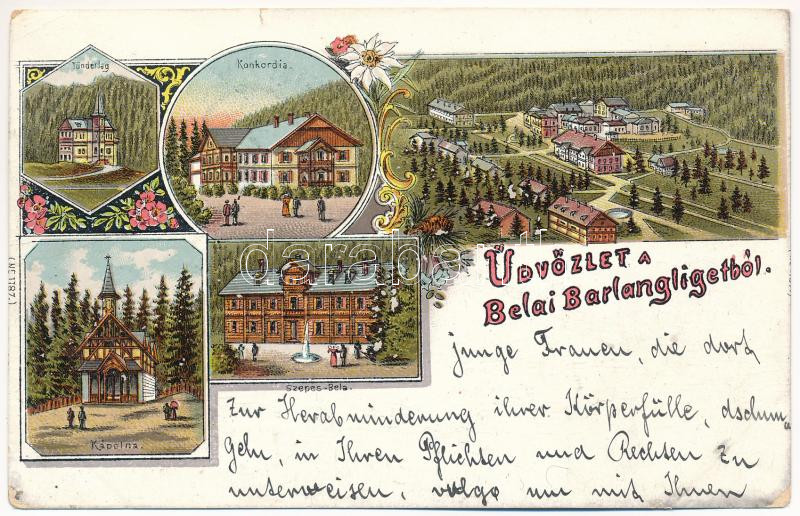 Tündérlag
Konkordia.
ÜDVÖZLET A
Belai Barlangligetből.
Szepes-Bela.
Kápolna.
junge Frauen, die dort
Zur Herabminderung ihrer Körperfülle, dschun-
geln, in Ihren Pflichten und Rechten zu
unterweisen, vulgo um mit Ihnen
darabanth